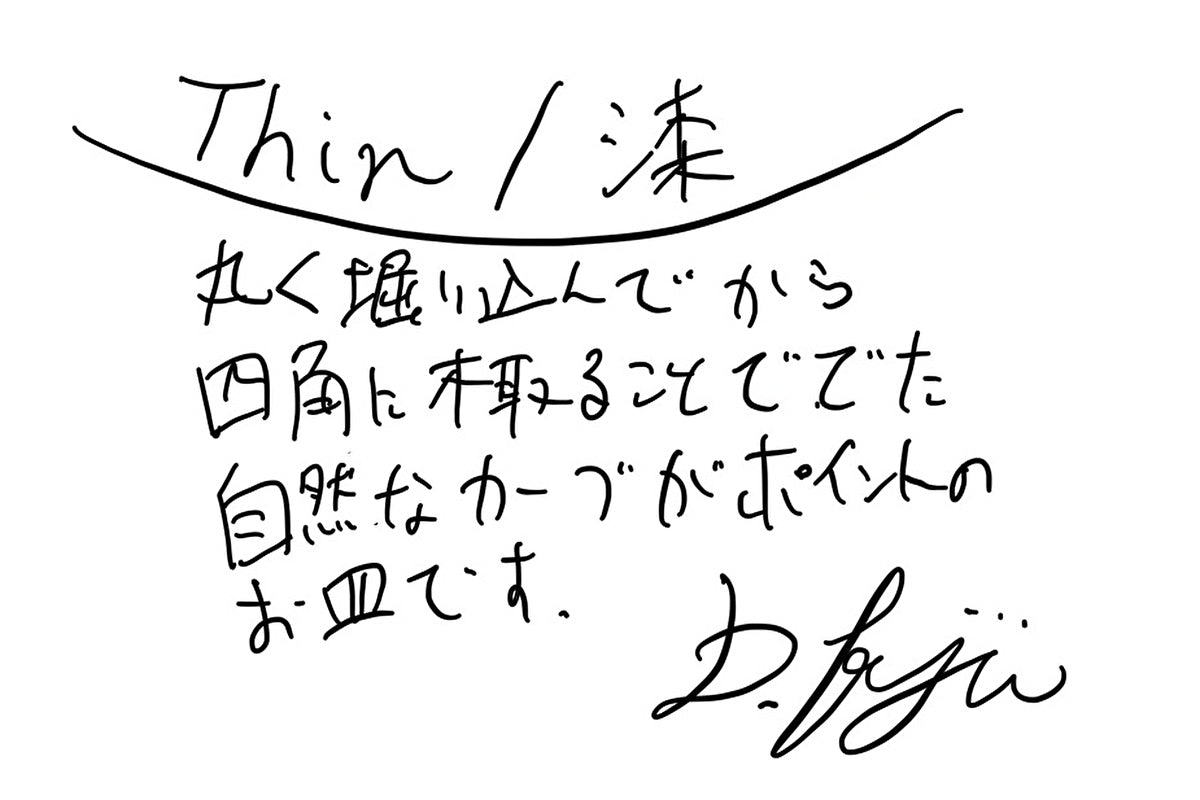 Thin / 漆
丸く堀り込んでから
四角に木取ることででた
自然なカーブがポイントの
お皿です.
D. Fujii